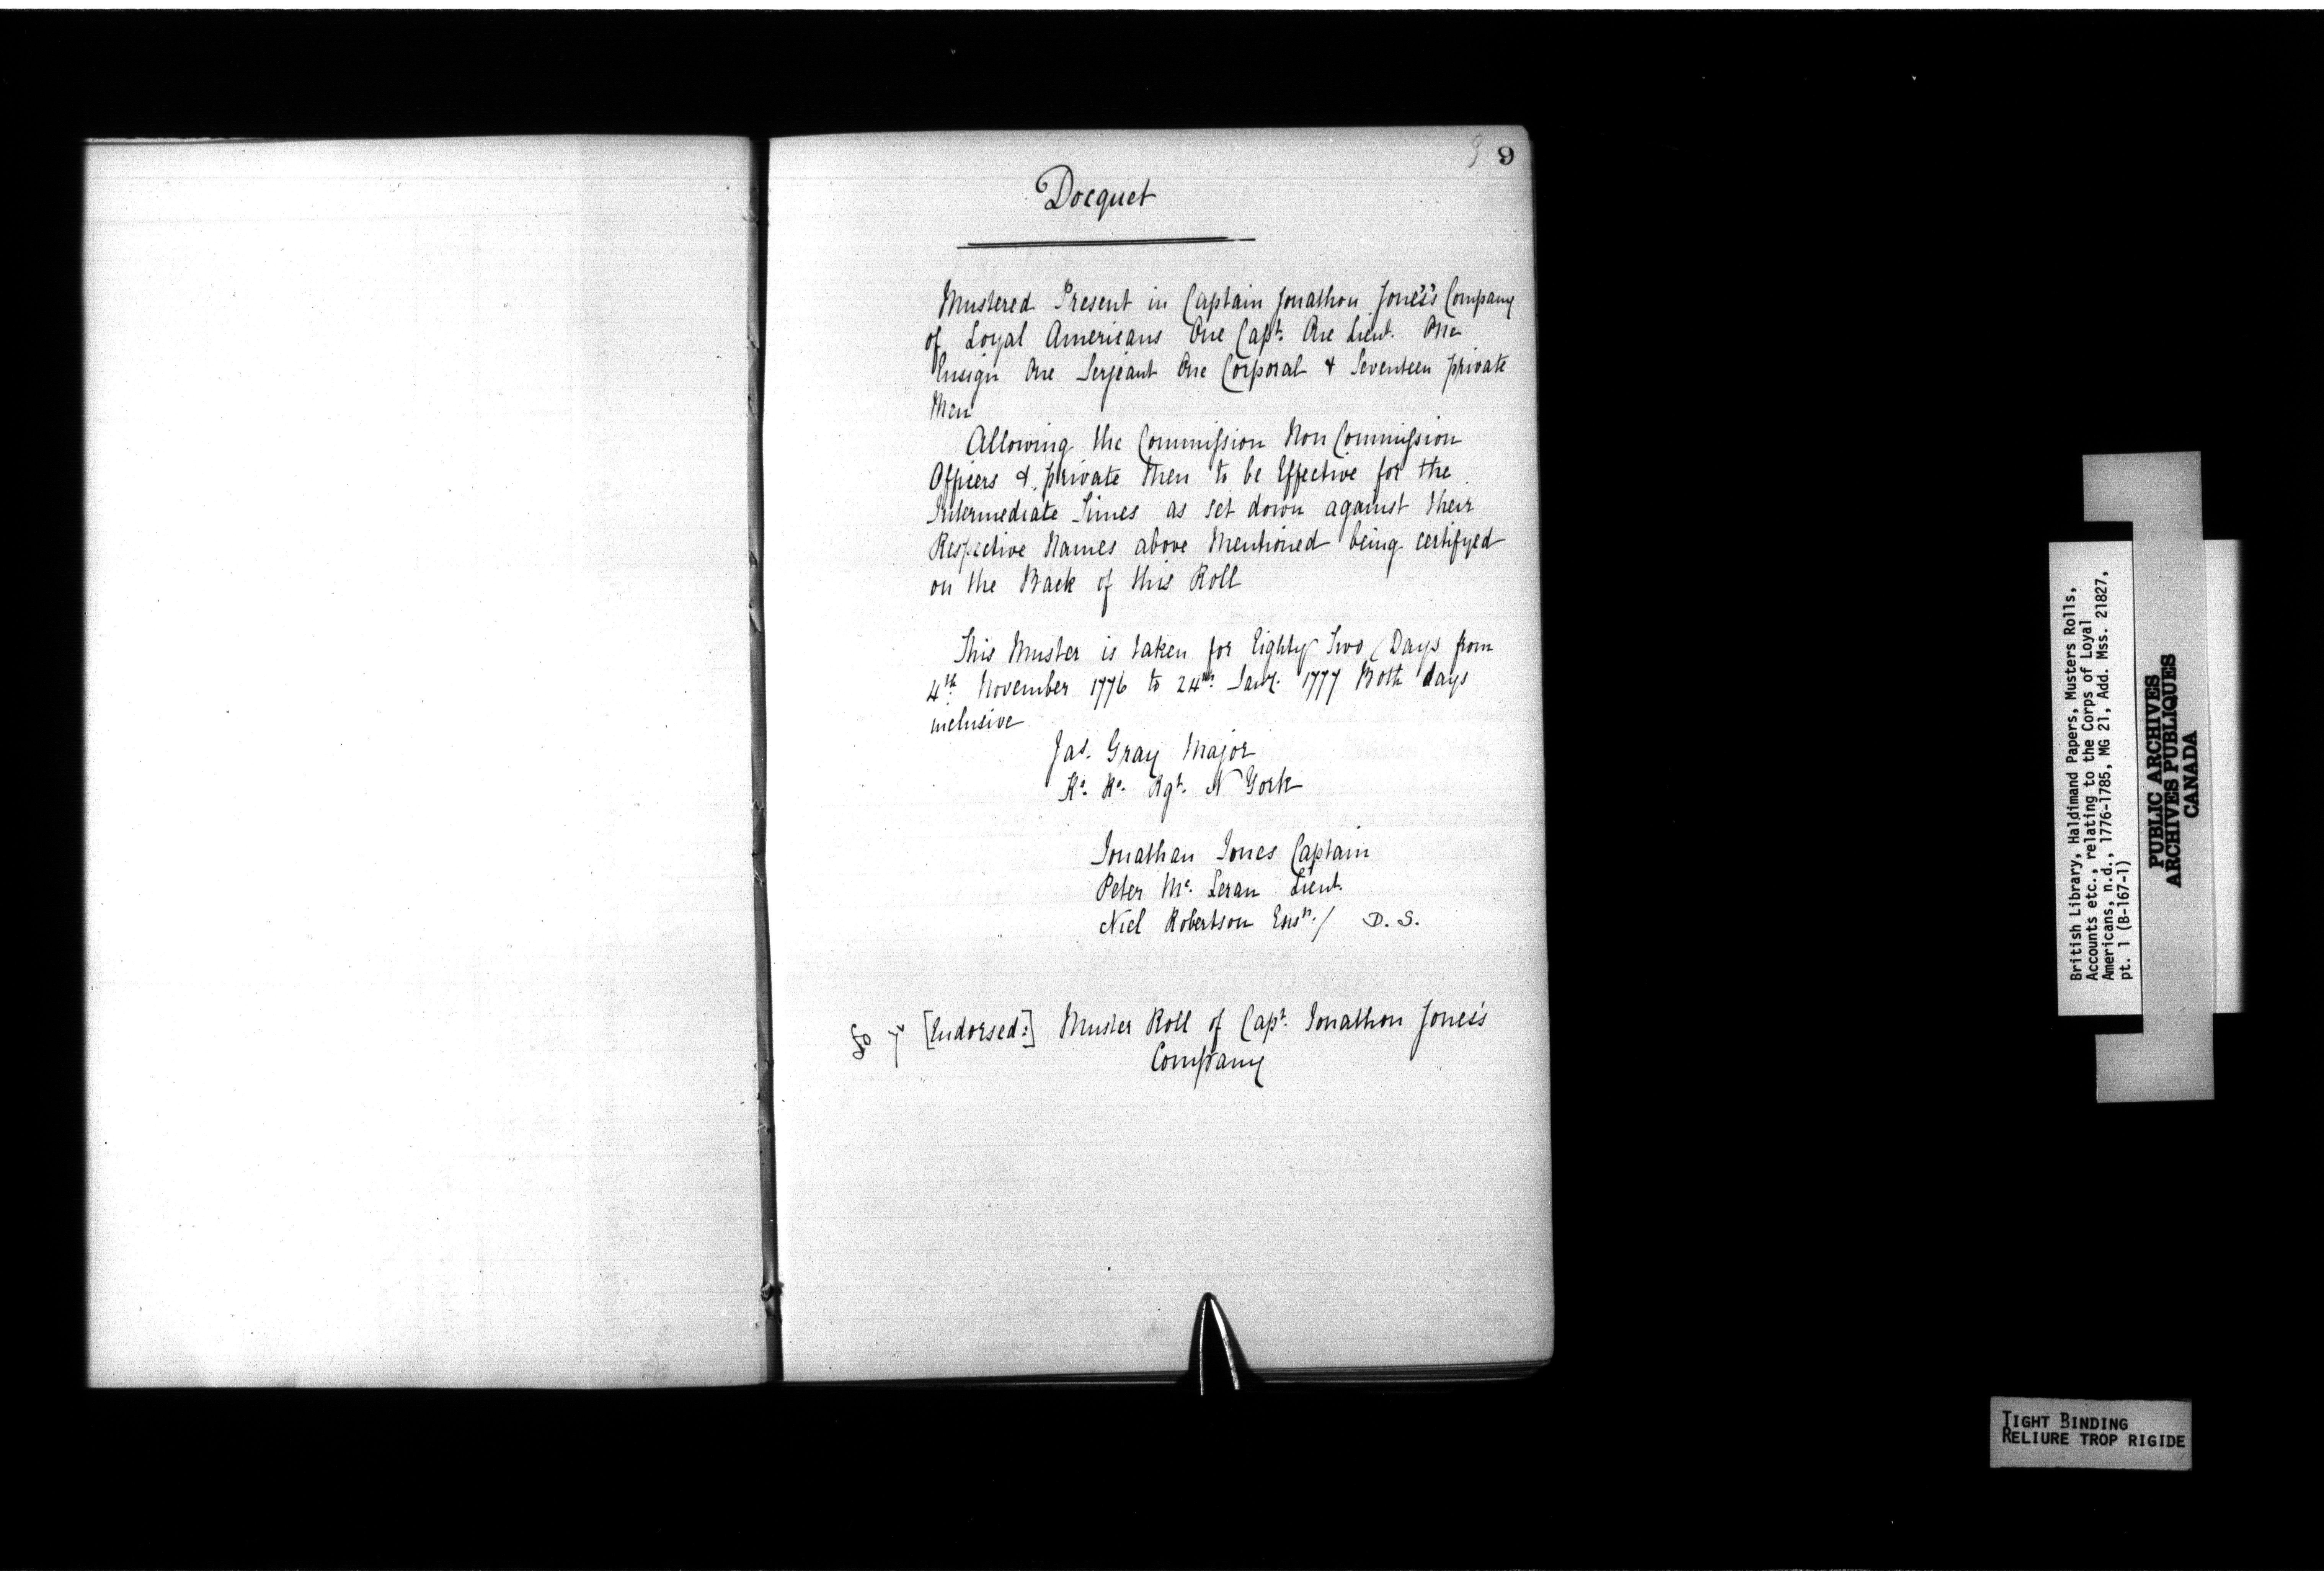 9 9
Docquet
Mustered Present in Captain Jonathon Jones's Company
of Loyal Americans One Capt. One Lieut. One
Ensign One Serjeant One Corporal & Seventeen private
Men
Allowing the Commission Non Commission
Officers & private Men to be Effective for the
Intermediate Times as set down against their
Respective Names above Mentioned being certifyed
on the Back of this Roll
This Muster is taken for Eighty Two Days from
4th November 1776 to 24th Jany. 1777 Both days
inclusive
Jas. Gray Major
Rl. Rl. Rgt. N York
Jonathan Jones Captain
Peter Mc. Leran Lieut.
Niel Robertson Ensn./ D. S.
[Endorsed:] Muster Roll of Capt. Jonathon Jones's
Company
British Library, Haldimand Papers, Musters Rolls,
Accounts etc., relating to the Corps of Loyal
Americans, n.d., 1776-1785, MG 21, Add. Mss. 21827,
pt. 1 (B-167-1)
PUBLIC ARCHIVES
ARCHIVES PUBLIQUES
CANADA
TIGHT BINDING
RELIURE TROP RIGIDE